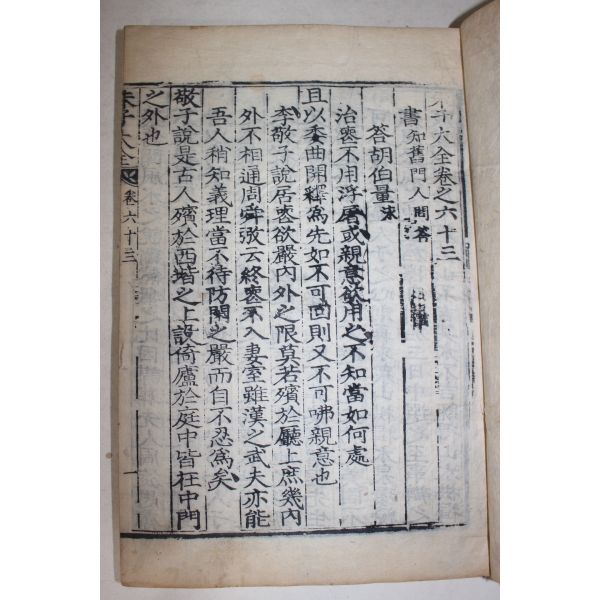 子大全卷之六十三
書知舊門人問答
答胡伯量泳
治喪不用浮屠或親意欲用之不知當如何處
且以委曲開釋爲先如不可回則又不可咈親意也
李敬子說居喪欲嚴內外之限莫若殯於廳上庶幾內
外不相通周舜弼云終喪不入妻室雖漢之武夫亦能
吾人稍知義理當不待防閑之嚴而自不忍爲矣
敬子說是古人殯於西堦之上設倚廬於庭中皆在中門
之外也
朱子大全 卷六十三